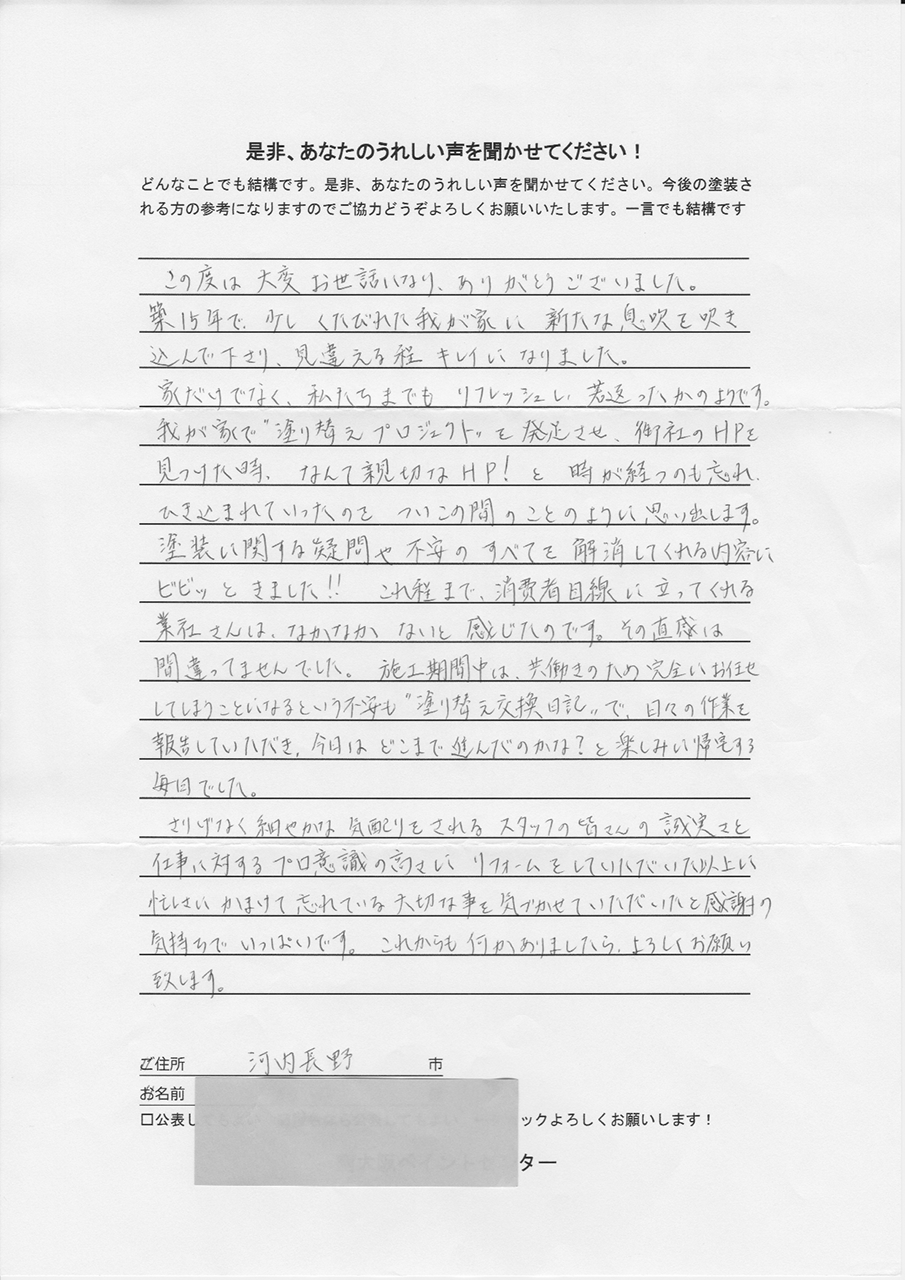 是非、あなたのうれしい声を聞かせてください！
どんなことでも結構です。是非、あなたのうれしい声を聞かせてください。今後の塗装さ
れる方の参考になりますのでご協力どうぞよろしくお願いいたします。一言でも結構です
この度は大変お世話になり、ありがとうございました。
築15年で、少しくたびれた我が家に新たな息吹を吹き
込んで下さり、見違える程キレイになりました。
家だけでなく、私たちまでもリフレッシュし、若返ったかのようです。
我が家で"塗り替えプロジェクト"を発足させ、御社のHPを
見つけた時、なんて親切なHP！と時が経つのも忘れ、
ひき込まれていったのをついこの間のことのように思い出します。
塗装に関する疑問や不安のすべてを解消してくれる内容に
ビビッときました!! これ程まで、消費者目線に立ってくれる
業社さんは、なかなかないと感じたのです。その直感は
間違ってませんでした。施工期間中は、共働きのため完全にお任せ
してしまうことになるという不安も"塗り替え交換日記"で、日々の作業を
報告していただき、今日はどこまで進んだのかな？と楽しみに帰宅する
毎日でした。
さりげなく細やかな気配りをされるスタッフの皆さんの誠実さと
仕事に対するプロ意識の高さにリフォームをしていただいた以上に
忙しさにかまけて忘れている大切な事を気づかせていただいたと感謝の
気持ちでいっぱいです。これからも何かありましたら、よろしくお願い
致します。
ご住所 河内長野 市
お名前
□公表し ックよろしくお願いします！
ター